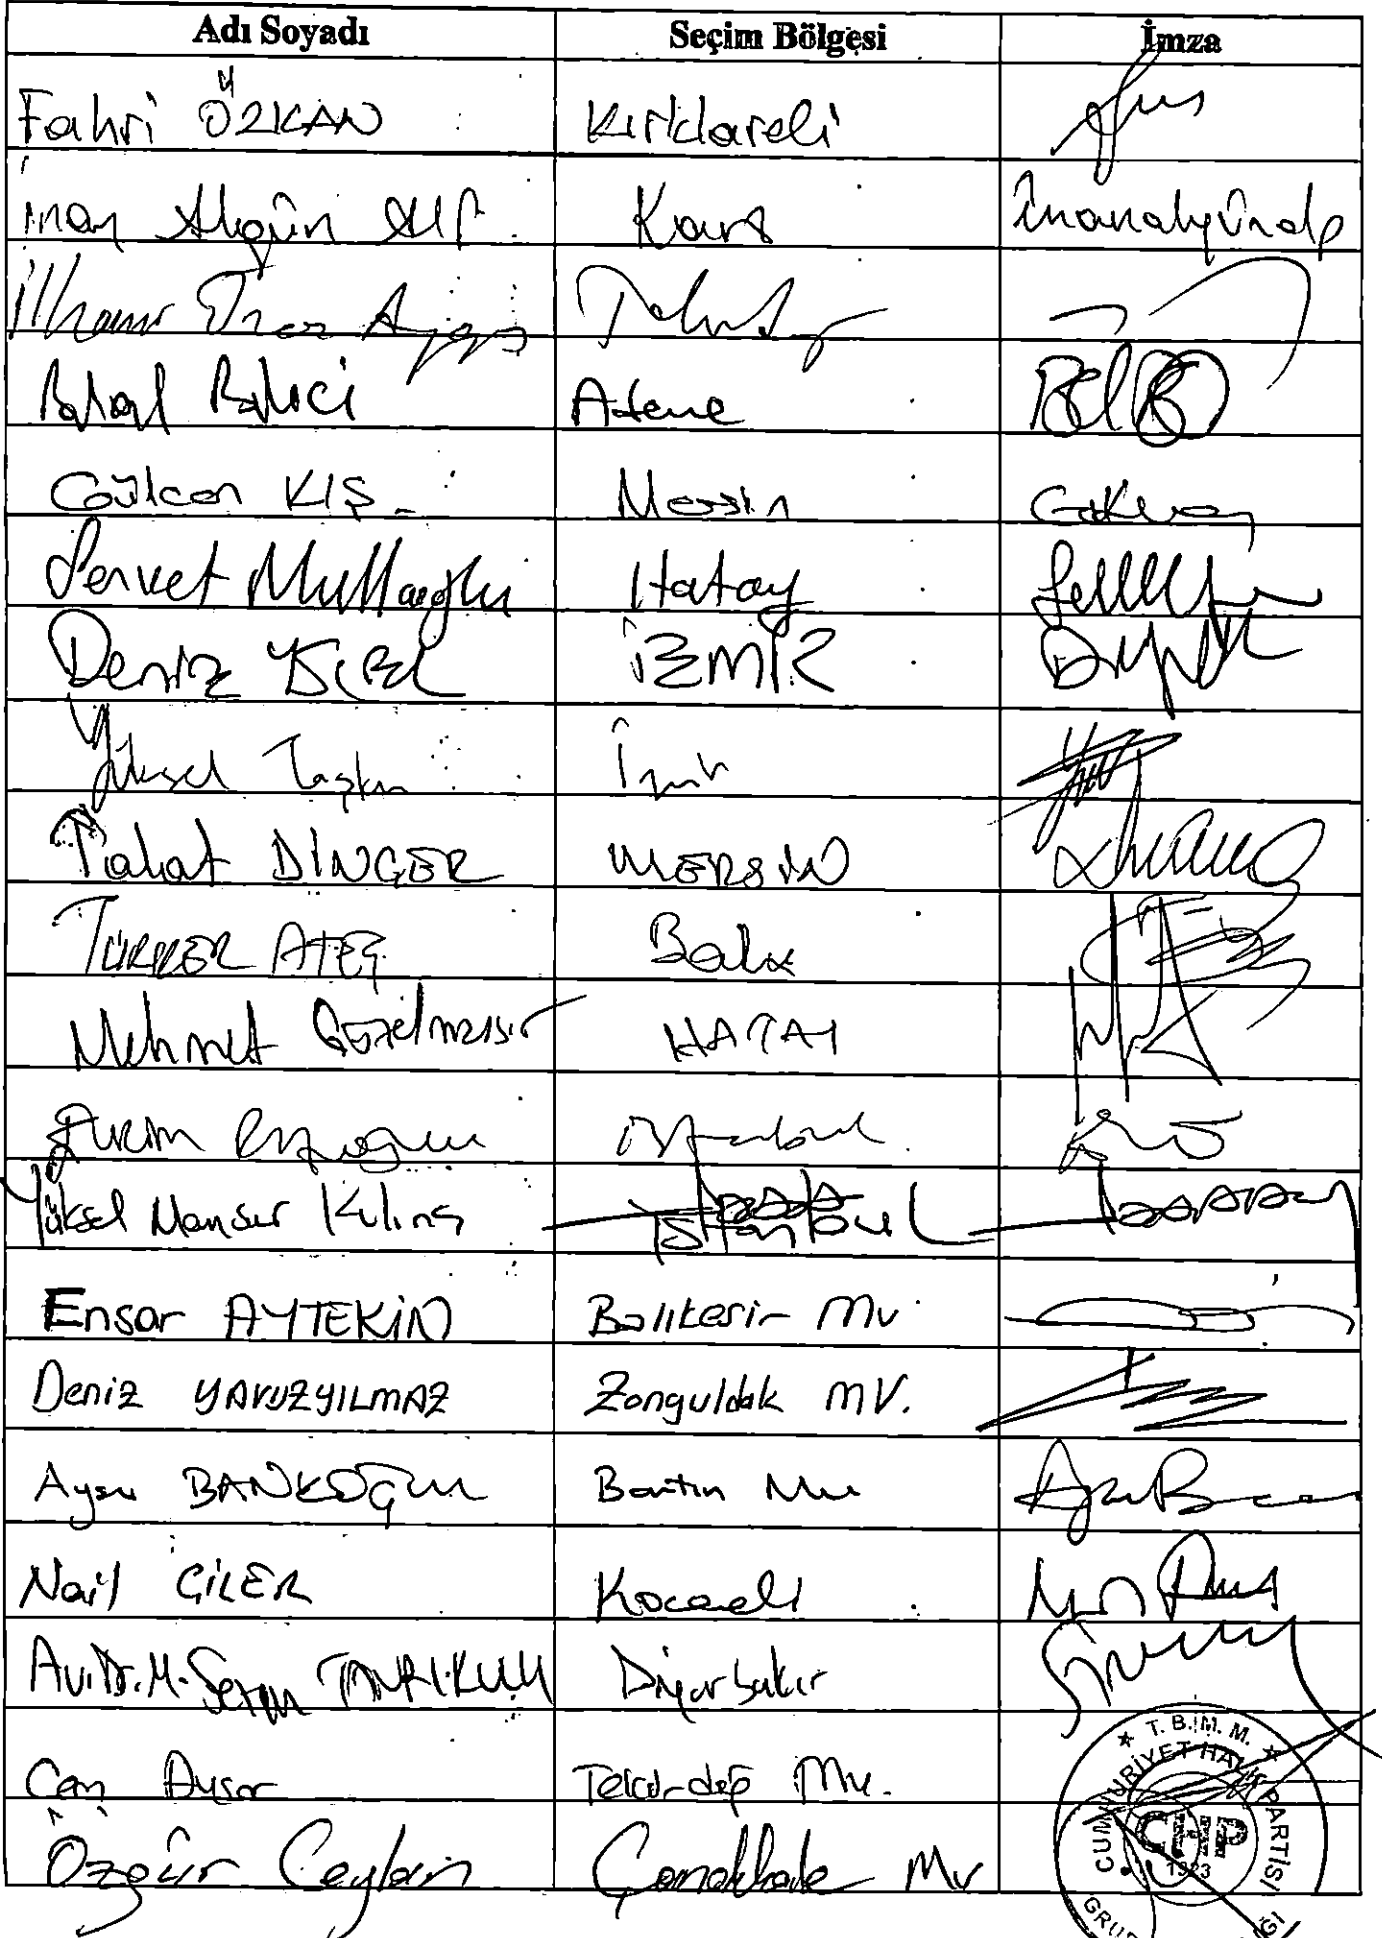 Adı Soyadı Seçim Bölgesi İmza
Fahri ÖZKAN Kırklareli
İnan Akgün Alp Kars İnanakgünalp
İlhami Özcan Aygun Tekirdağ
Bilal Bilici Adana
Gülcan KIŞ Mersin
Servet Mullaoğlu Hatay
Deniz YÜCEL İZMİR
Yüksel Taşkın İzmir
Talat DİNÇER MERSİN
TÜRKER ATEŞ Bolu
Mehmet Güzelmansur HATAY
İstanbul
Yüksel Mansur Kılınç İstanbul
Ensar AYTEKİN Balıkesir Mv
Deniz YAVUZYILMAZ Zonguldak MV.
Aysu BANKOĞLU Bartın Mv
Nail ÇİLER Kocaeli
Av.Dr.M. Sezgin TANRIKULU Diyarbakır
Cem Avşar Tekirdağ Mv.
Özgür Ceylan Çanakkale Mv
T. B. M. M.
CUMHURİYET HALK PARTİSİ
CHP
1923